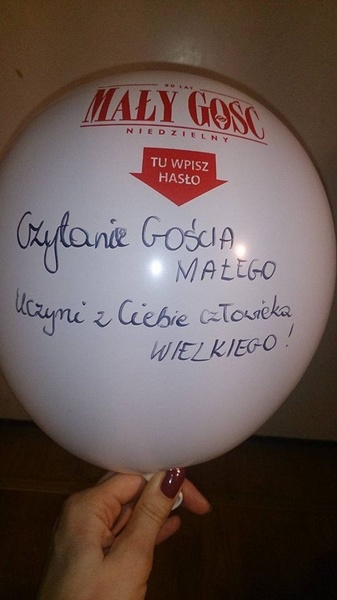 90 LAT
MAŁY GOŚĆ
NIEDZIELNY
TU WPISZ
HASŁO
Czytanie GOŚCIA
MAŁEGO
Uczyni z Ciebie człowieka
WIELKIEGO!